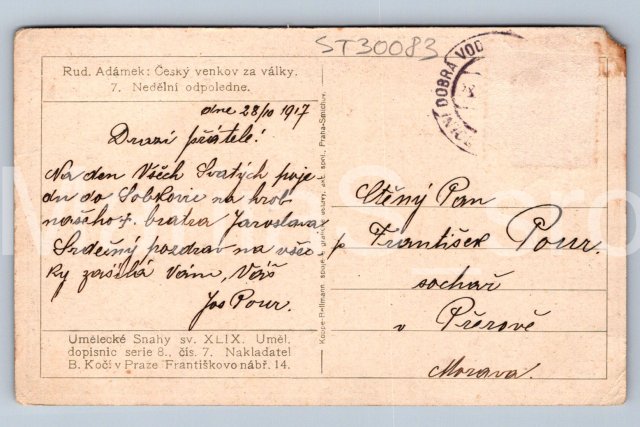 ST30083
NÍ DOBRÁ VOD
Rud. Adámek: Český venkov za války.
7. Nedělní odpoledne.
dne 28/10 1917
Drazí přátelé!
Na den Všech Svatých poje-
du do Sobkovic na hrob
našeho †. bratra Jaroslava
Srdečný pozdrav na vše-
cky zasílá Vám, Váš
Jos Pour.
Umělecké Snahy sv. XLIX. Uměl.
dopisnic serie 8., čís. 7. Nakladatel
B. Kočí v Praze Františkovo nábř. 14.
Koppe-Bellmann, spojené grafické ústavy, akc. spol. Praha-Smíchov.
Ctěný Pan
p František Pour.
sochař
v Přerově
Morava.